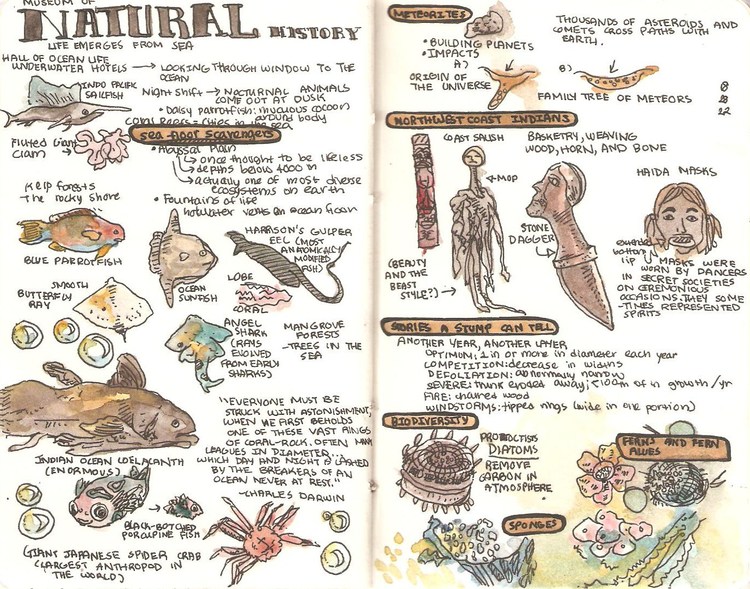 MUSEUM OF
NATURAL HISTORY
LIFE EMERGES FROM SEA
HALL OF OCEAN LIFE
UNDERWATER HOTELS → LOOKING THROUGH WINDOW TO THE
OCEAN
INDO PACIFIC
SAILFISH
NIGHT SHIFT → NOCTURNAL ANIMALS
COME OUT AT DUSK
• Daisy parrotfish: mucuous cocoon
around body
coral reefs = cities in the sea
Fluted Giant
Clam →
Sea floor scavengers
• Abyssal Plain
once thought to be lifeless
→ depths below 4000 m
→ actually one of most diverse
ecosystems on earth
• Fountains of life
hotwater vents on ocean floor
Kelp forests
The rocky shore
BLUE PARROTFISH
OCEAN
SUNFISH
HARRISON'S GULPER
EEL (MOST
ANATOMICALLY
MODIFIED
FISH)
LOBE
CORAL
SMOOTH
BUTTERFLY
RAY
ANGEL
SHARK
(RAYS
EVOLVED
FROM EARLY
SHARKS)
MANGROVE
FORESTS
-TREES IN THE
SEA
INDIAN OCEAN COELACANTH
(ENORMOUS)
"EVERYONE MUST BE
STRUCK WITH ASTONISHMENT,
WHEN WE FIRST BEHOLDS
ONE OF THESE VAST RINGS
OF CORAL-ROCK, OFTEN MANY
LEAGUES IN DIAMETER...
WHICH DAY AND NIGHT IS LASHED
BY THE BREAKERS OF AN
OCEAN NEVER AT REST."
-CHARLES DARWIN
BLACK-BOTCHED
PORCUPINE FISH
GIANT JAPANESE SPIDER CRAB
(LARGEST ANTHROPOD IN
THE WORLD)
METEORITES
• BUILDING PLANETS
• IMPACTS
THOUSANDS OF ASTEROIDS AND
COMETS CROSS PATHS WITH
EARTH.
A)
ORIGIN OF
THE UNIVERSE
B)
FAMILY TREE OF METEORS
NORTHWEST COAST INDIANS
COAST SALISH
BASKETRY, WEAVING
WOOD, HORN, AND BONE
MOP
(BEAUTY
AND THE
BEAST
STYLE?) →
STONE
DAGGER
HAIDA MASKS
extended
bottom
lip
MASKS WERE
WORN BY DANCERS
IN SECRET SOCIETIES
ON CEREMONIOUS
OCCASIONS. THEY SOME
-TIMES REPRESENTED
SPIRITS
STORIES A STUMP CAN TELL
ANOTHER YEAR, ANOTHER LAYER
OPTIMUM: 1 in or more in diameter each year
COMPETITION: decrease in widths
DEFOLIATION: abnormally narrow
SEVERE: trunk eroded away;
growth/yr
FIRE: charred wood
WINDSTORMS: tipped rings (wide in one portion)
BIODIVERSITY
PROTOCTISTS
DIATOMS
REMOVE
CARBON IN
ATMOSPHERE
FERNS AND FERN
ALLIES
SPONGES